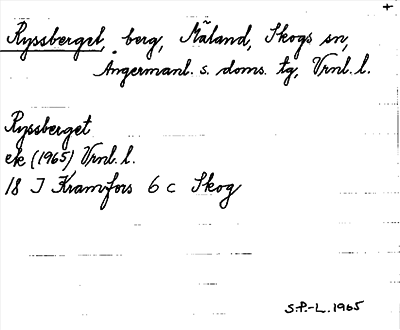 +
Ryssberget, berg, Måland, Skogs sn,
Ångermanl. s. doms. tg, Vrnl. l.
Ryssberget
ek (1965) Vrnl. l.
18 I Kramfors 6 c Skog
S.P.-L. 1965